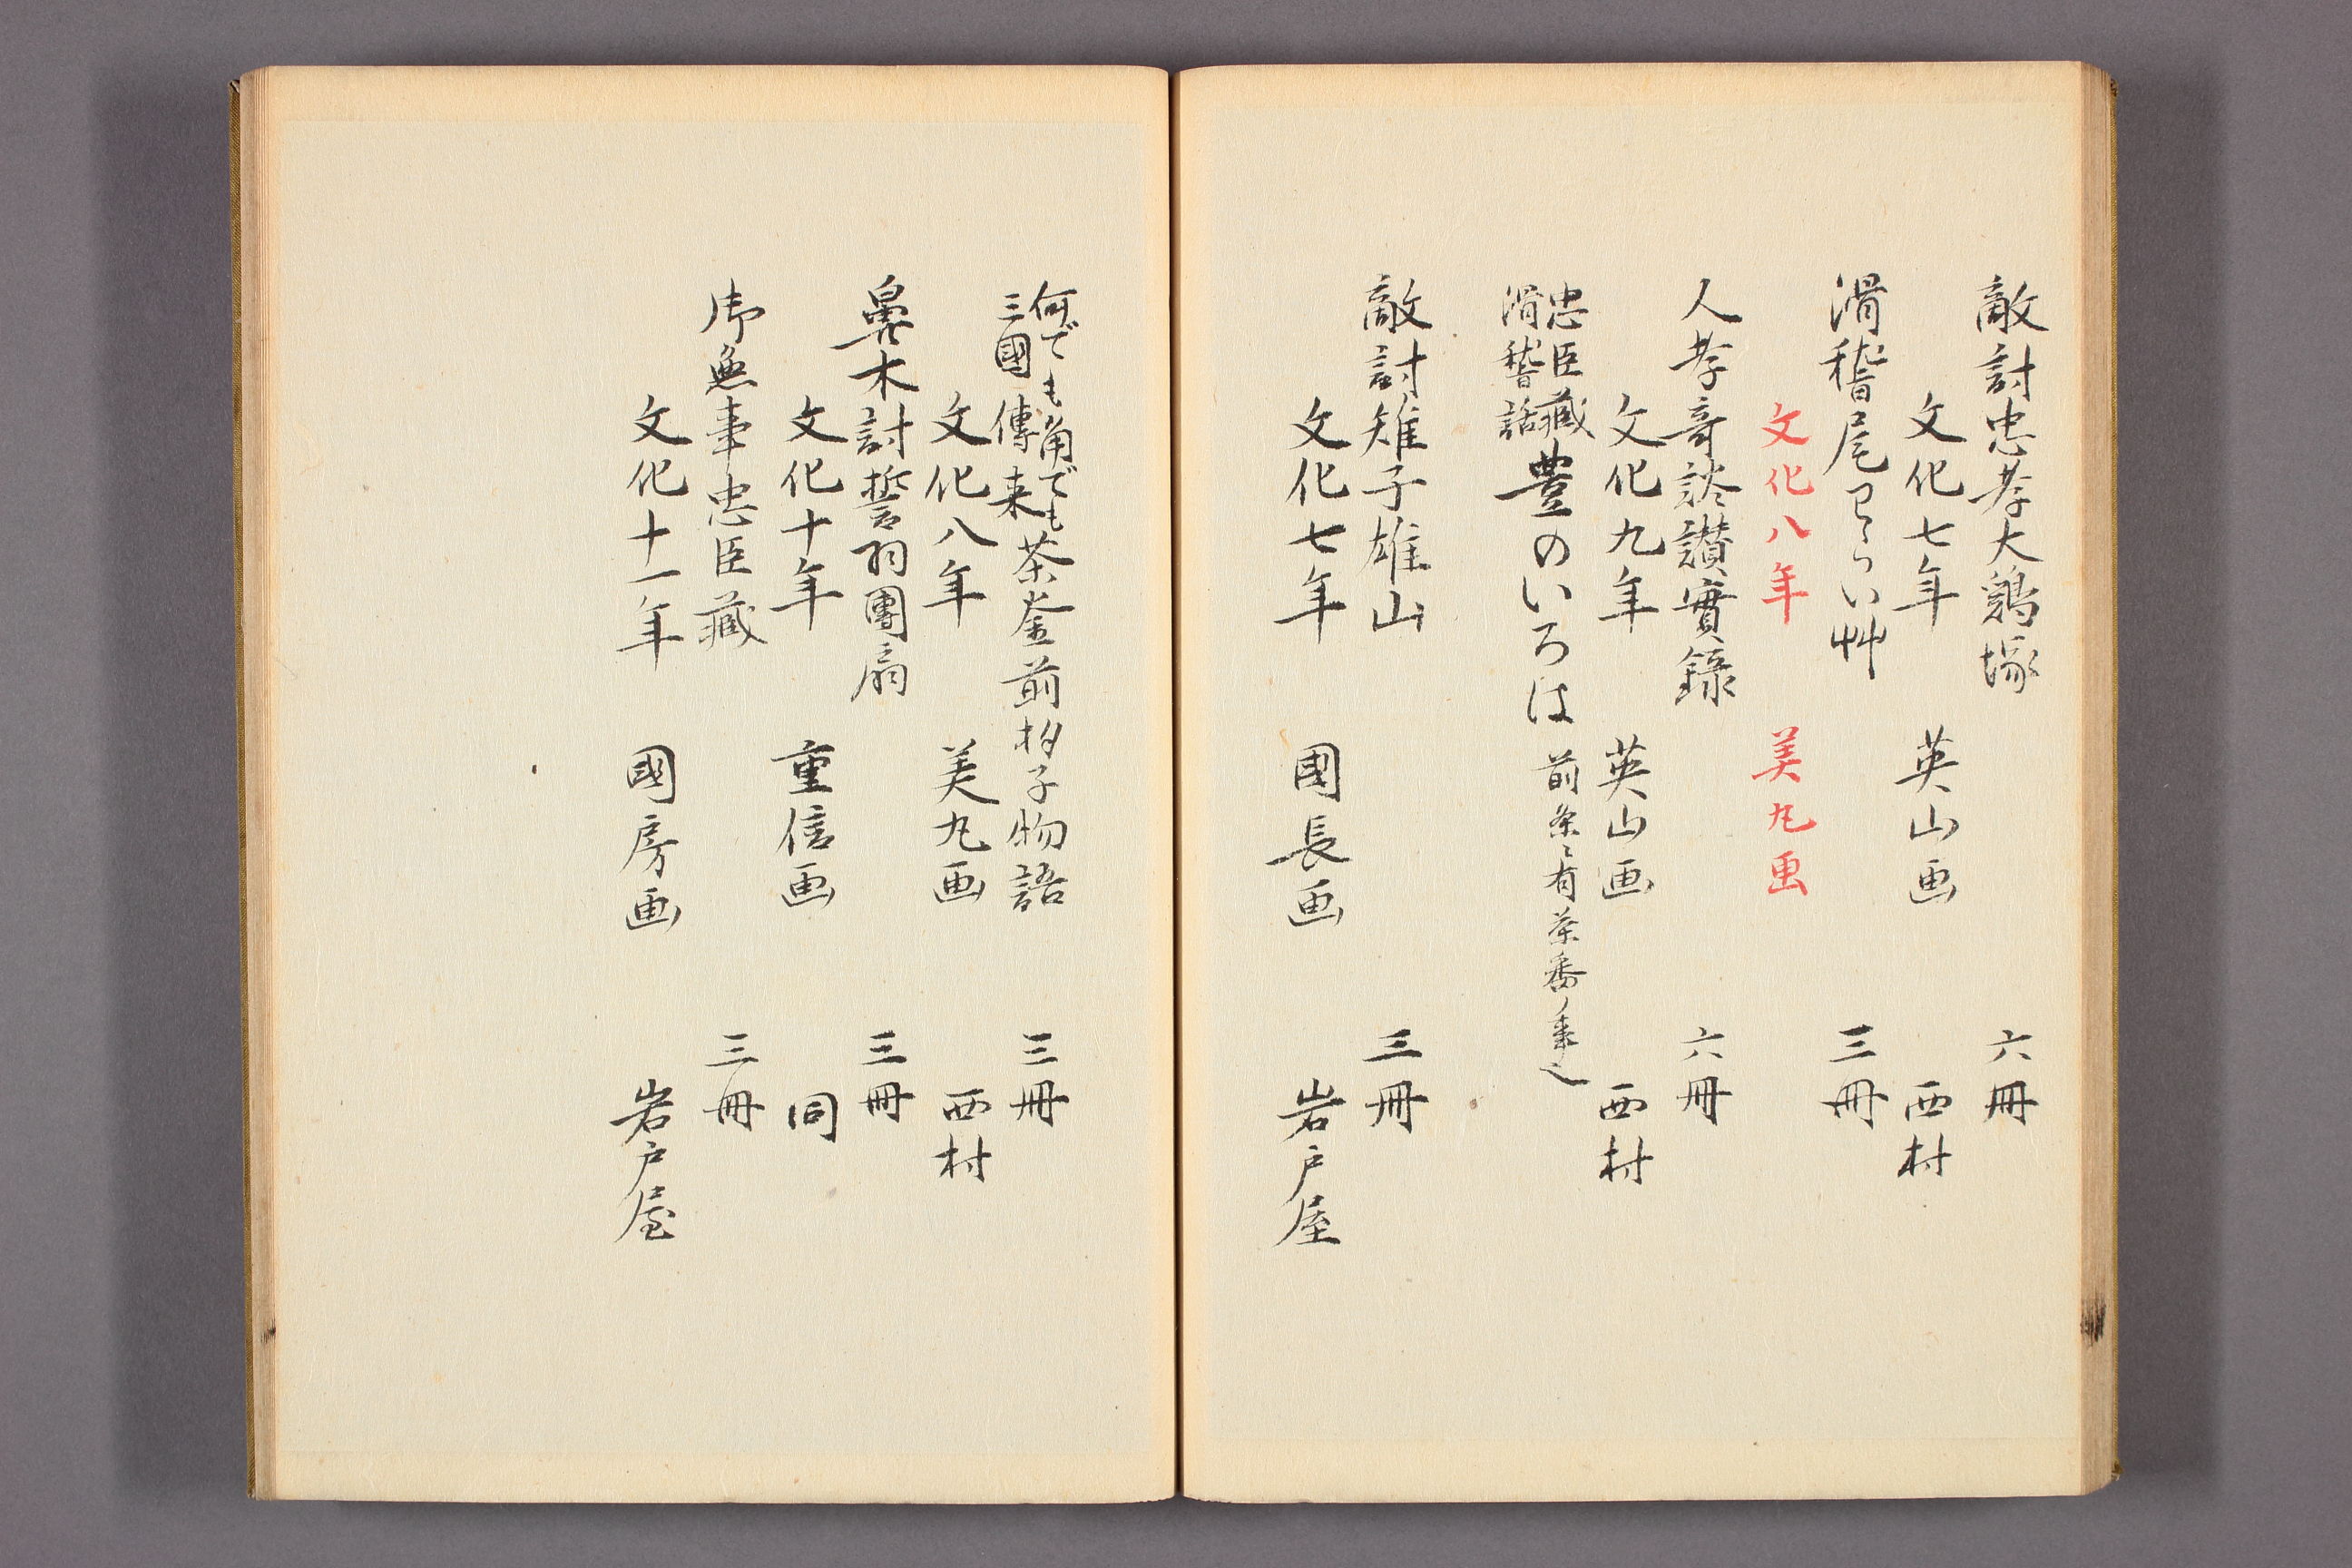 敵討忠孝大鶏塚 六冊
文化七年 英山画 西村
滑稽尾のらい艸 三冊
文化八年 美丸画
人孝奇談讃實録 六冊
文化九年 英山画 西村
忠臣藏
滑稽話 豊のいろは 前条ニ有茶番ノ事也
敵討雉子雄山 三冊
文化七年 國長画 岩戸屋
何でも角でも
三國傳来 茶釜前杓子物語 三冊
文化八年 美丸画 西村
鼻木討誓羽團扇 三冊
文化十年 重信画 同
御無事忠臣藏 三冊
文化十一年 國房画 岩戸屋